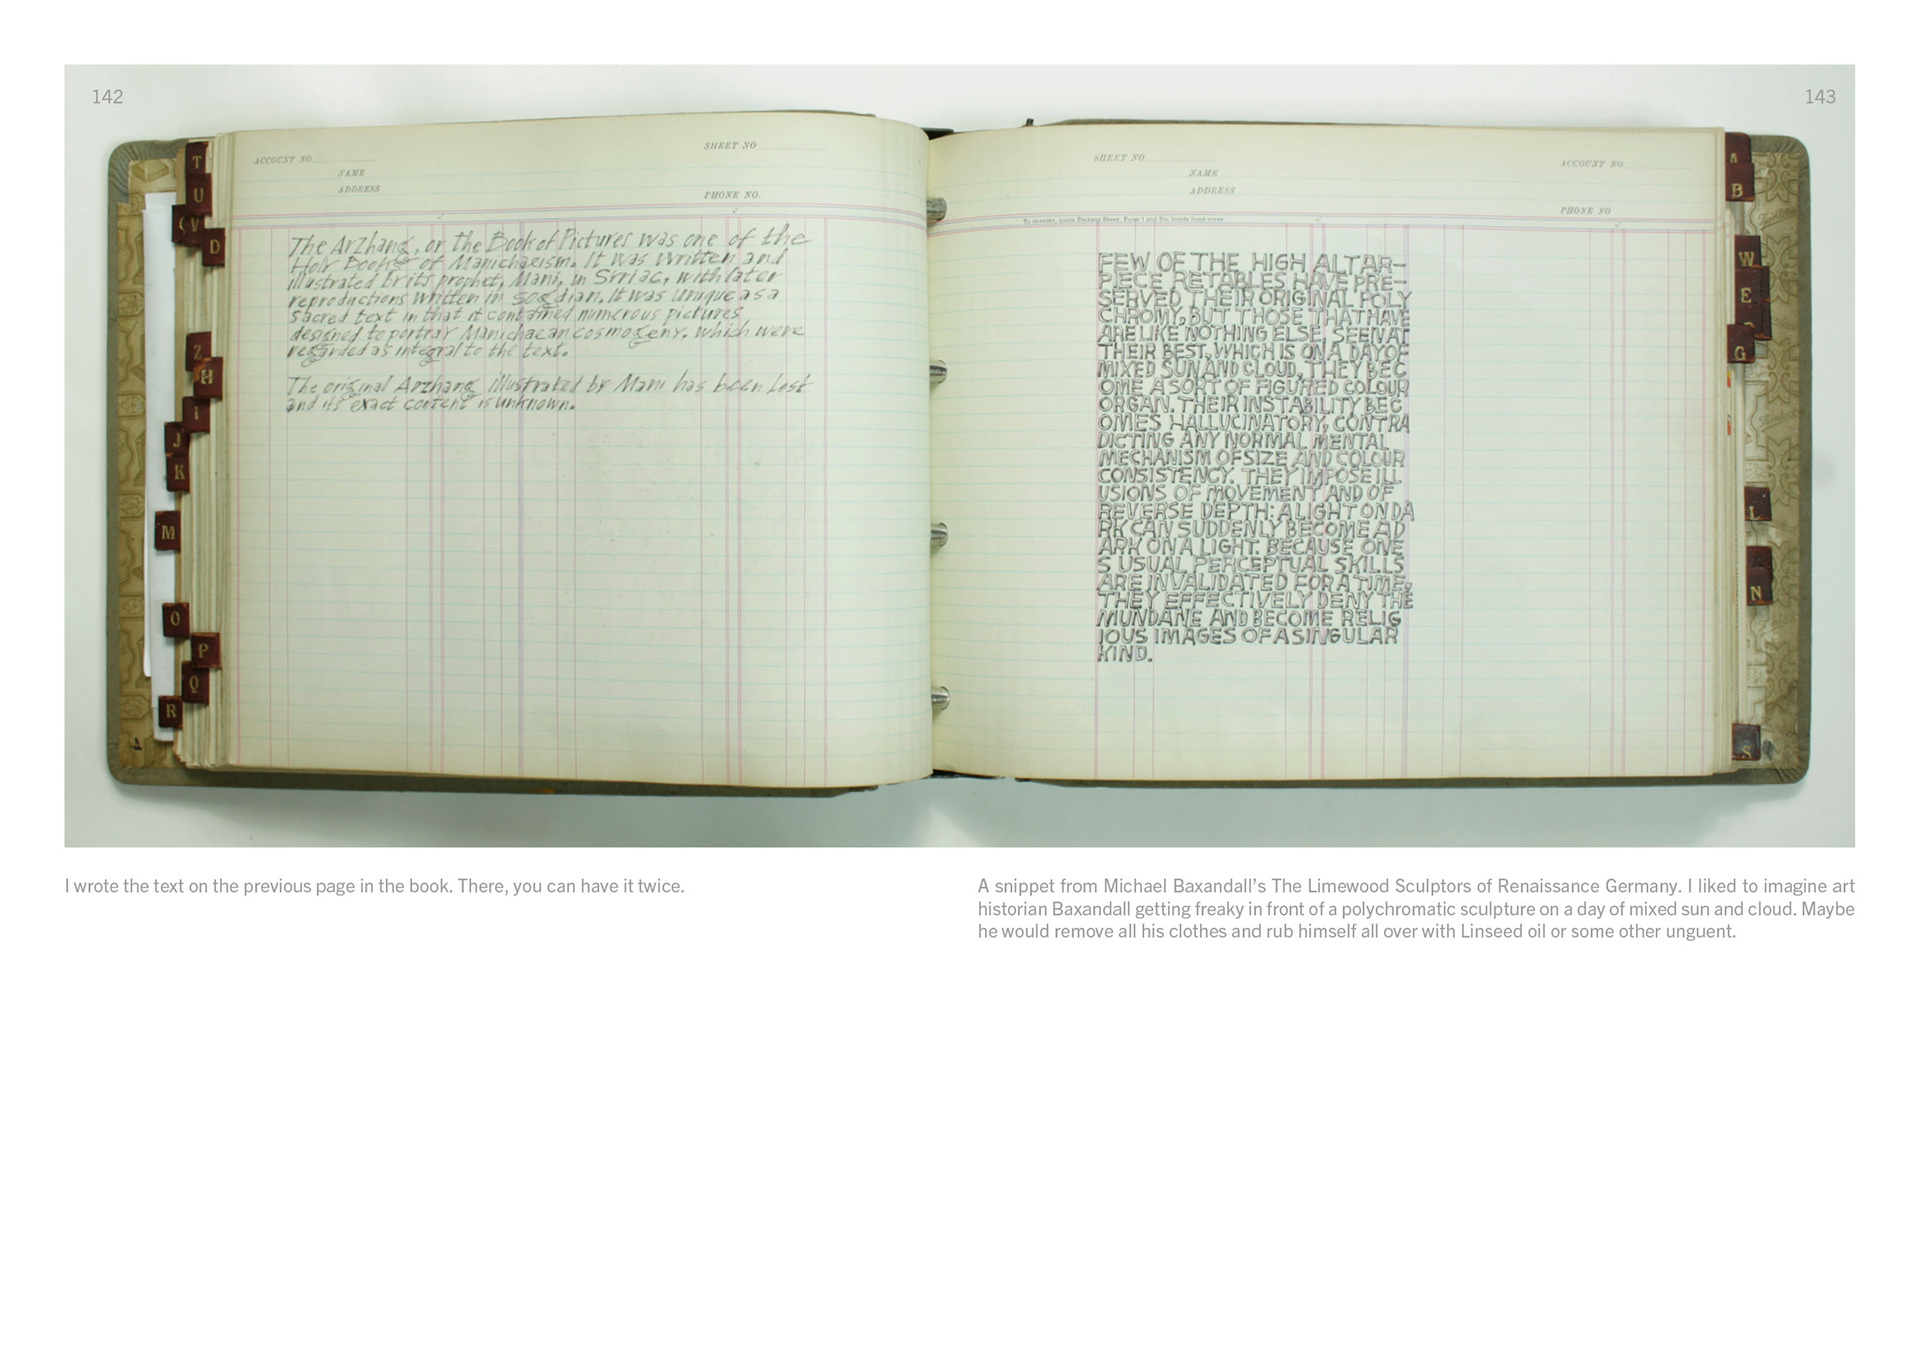 142
143
T
U
V
D
Z
H
I
J
K
M
O
P
Q
R
ACCOUNT NO
SHEET NO
NAME
ADDRESS
PHONE NO.
The Arzhang, or the Book of Pictures was one of the
Holy Books of Manichaeism. It was written and
illustrated by its prophet, Mani, in Syriac, with later
reproductions written in Sogdian. It was unique as a
sacred text in that it contained numerous pictures
designed to portray Manichaean cosmogeny, which were
regarded as integral to the text.
The original Arzhang illustrated by Mani has been lost
and its exact content is unknown.
SHEET NO
ACCOUNT NO
NAME
ADDRESS
PHONE NO
FEW OF THE HIGH ALTAR-
PIECE RETABLES HAVE PRE-
SERVED THEIR ORIGINAL POLY
CHROMY, BUT THOSE THAT HAVE
ARE LIKE NOTHING ELSE. SEEN AT
THEIR BEST, WHICH IS ON A DAY OF
MIXED SUN AND CLOUD, THEY BEC
OME A SORT OF FIGURED COLOUR
ORGAN. THEIR INSTABILITY BEC
OMES HALLUCINATORY, CONTRA
DICTING ANY NORMAL MENTAL
MECHANISM OF SIZE AND COLOUR
CONSISTENCY. THEY IMPOSE ILL
USIONS OF MOVEMENT AND OF
REVERSE DEPTH: A LIGHT ON DA
RK CAN SUDDENLY BECOME A D
ARK ON A LIGHT. BECAUSE ONE
S USUAL PERCEPTUAL SKILLS
ARE INVALIDATED FOR A TIME,
THEY EFFECTIVELY DENY THE
MUNDANE AND BECOME RELIG
IOUS IMAGES OF A SINGULAR
KIND.
A
B
W
E
G
L
N
S
I wrote the text on the previous page in the book. There, you can have it twice.
A snippet from Michael Baxandall's The Limewood Sculptors of Renaissance Germany. I liked to imagine art
historian Baxandall getting freaky in front of a polychromatic sculpture on a day of mixed sun and cloud. Maybe
he would remove all his clothes and rub himself all over with Linseed oil or some other unguent.